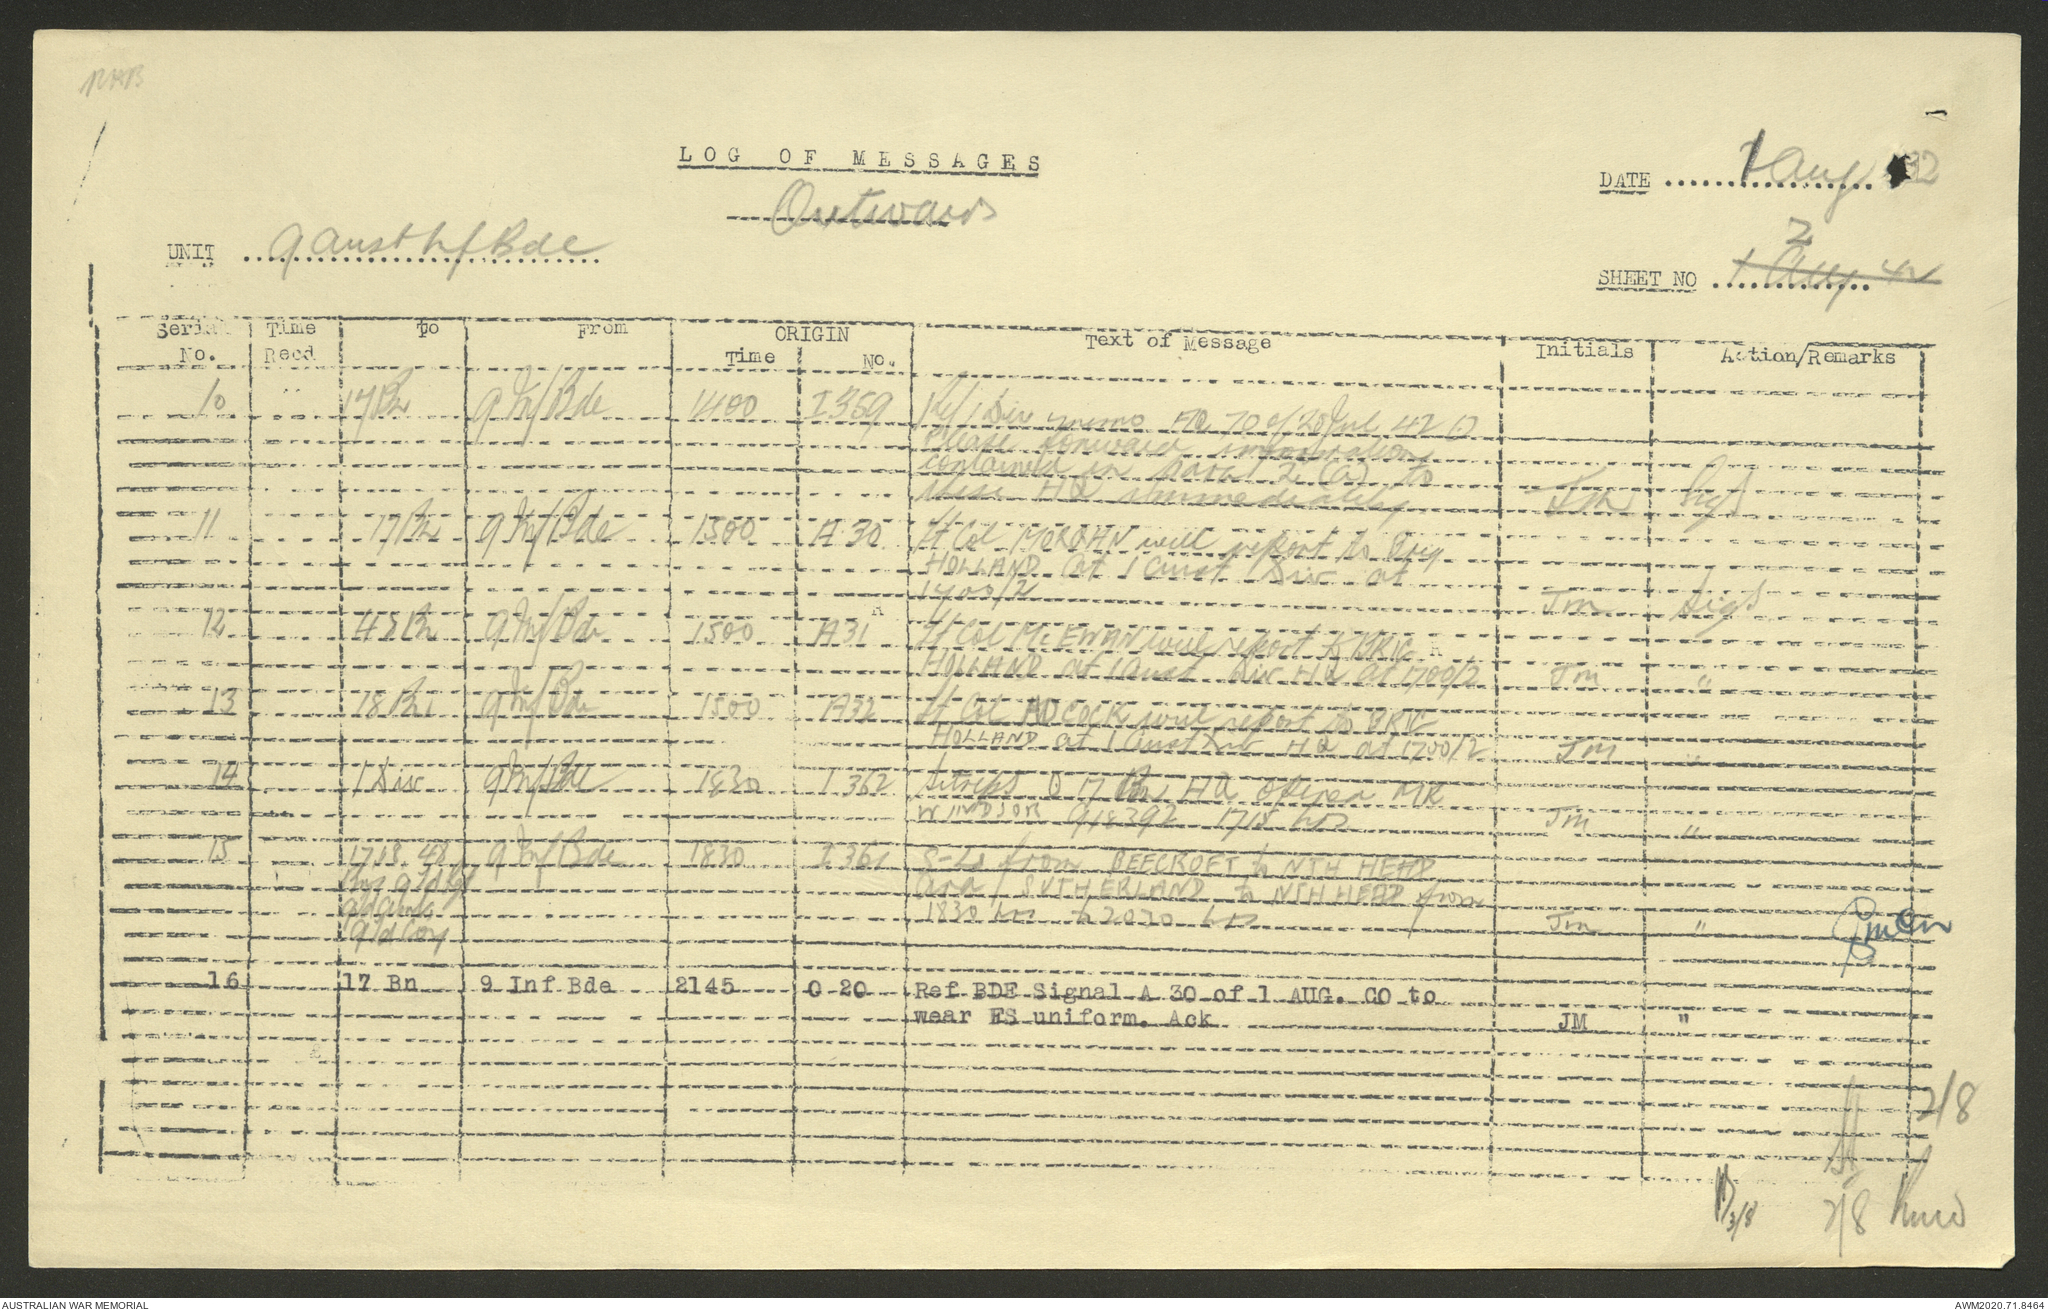 LOG OF MESSAGES
Outwards
DATE 1 Aug 42
UNIT 9 Aust Inf Bde
SHEET NO 2
1 Aug 42
Serial No. Time Recd To From ORIGIN Time No. Text of Message Initials Action/Remarks
10 17 Bn 9 Inf Bde 1400 I 359 Ref 1 Div memo 70 of 20 Jul 42 ()
Please forward information
contained in para 2 (a) to
this HQ immediately Sigs
11 17 Bn 9 Inf Bde 1500 A 30 Lt Col MORAHN will report to Brig
HOLLAND at 1 Aust Div at
1700/2 JM Sigs
12 45 Bn 9 Inf Bde 1500 A31 Lt Col McEWAN will report to BRIG
HOLLAND at 1 Aust Div HQ at 1700/2 JM "
13 18 Bn 9 Inf Bde 1500 A32 Lt Col ADCOCK will report to BRIG
HOLLAND at 1 Aust Div HQ at 1700/2 JM "
14 1 Div 9 Inf Bde 1830 I 362 Sitreps () 17 Bn HQ opened MR
WINDSOR 918392 1715 hrs JM "
15 17 18 45 9 Inf Bde 1830 I 361 S-Ls from BEECROFT to NTH HEAD
Bns 9 Fd Regt and SUTHERLAND to NTH HEAD from
1830 hrs to 2030 hrs JM "
9 Fd Coy
16 17 Bn 9 Inf Bde 2145 O 20 Ref BDE Signal A 30 of 1 AUG. CO to
wear FS uniform. Ack JM "
2/8
3/8
2/8
AUSTRALIAN WAR MEMORIAL
AWM2020.71.8464